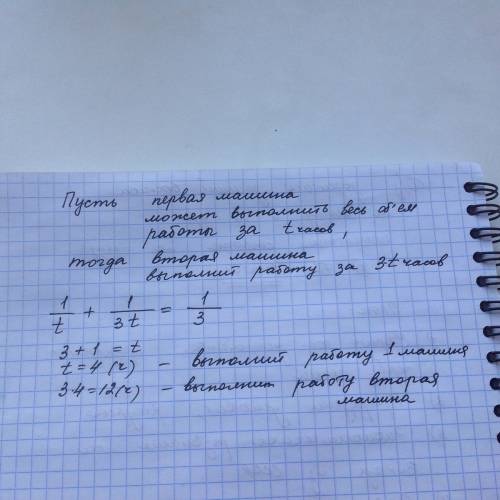 Пусть первая машина
может выполнить весь об'ем
работы за t часов,
тогда вторая машина
выполнит работу за 3t часов
1/t + 1/3t = 1/3
3 + 1 = t
t = 4 (ч) – выполнит работу 1 машина
3·4 = 12 (ч) – выполнит работу вторая
машина